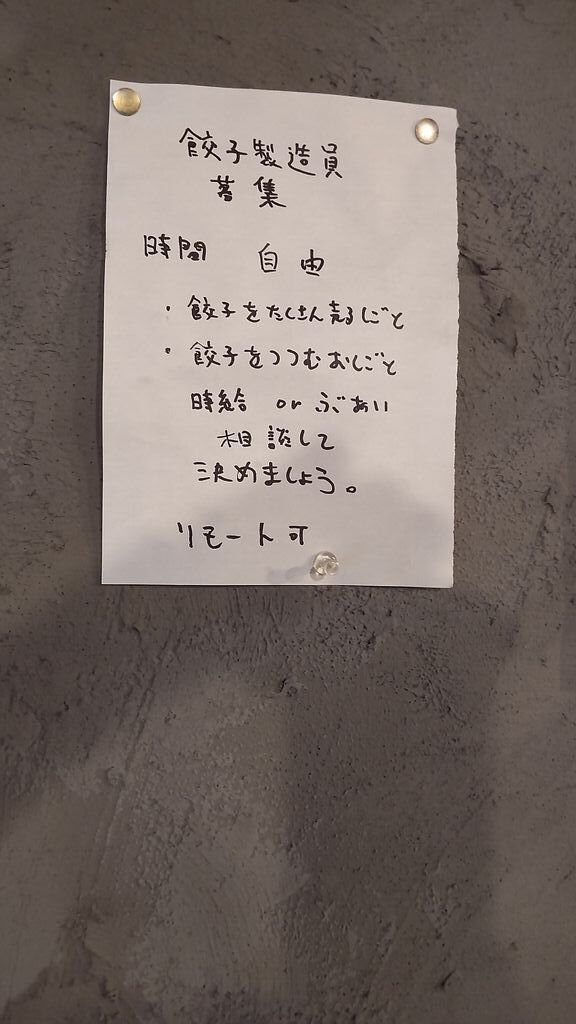 餃子製造員
募集
時間 自由
・餃子をたくさん売るしごと
・餃子をつつむおしごと
時給 or ぶあい
相談して
決めましょう。
リモート可